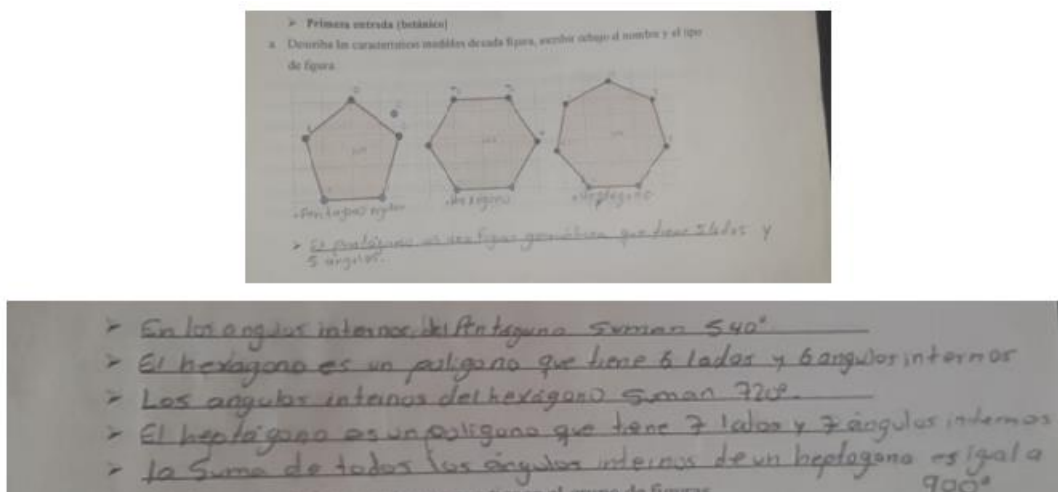 ➢ Primera entrada (botánico)
a. Describa las características medibles de cada figura, escriba debajo el nombre y el tipo
de figura
Pentágono regular
Hexágono
Heptágono
➢ El pentágono es una figura geométrica que tiene 5 lados y
5 ángulos.
➢ En los angulos internos del Pentagono suman 540°
➢ El hexagono es un poligono que tiene 6 lados y 6 angulos internos
➢ Los angulos internos del hexágono suman 720°.
➢ El heptágono es un poligono que tiene 7 lados y 7 ángulos internos
➢ la suma de todos los ángulos internos de un heptagono es igual a
900°